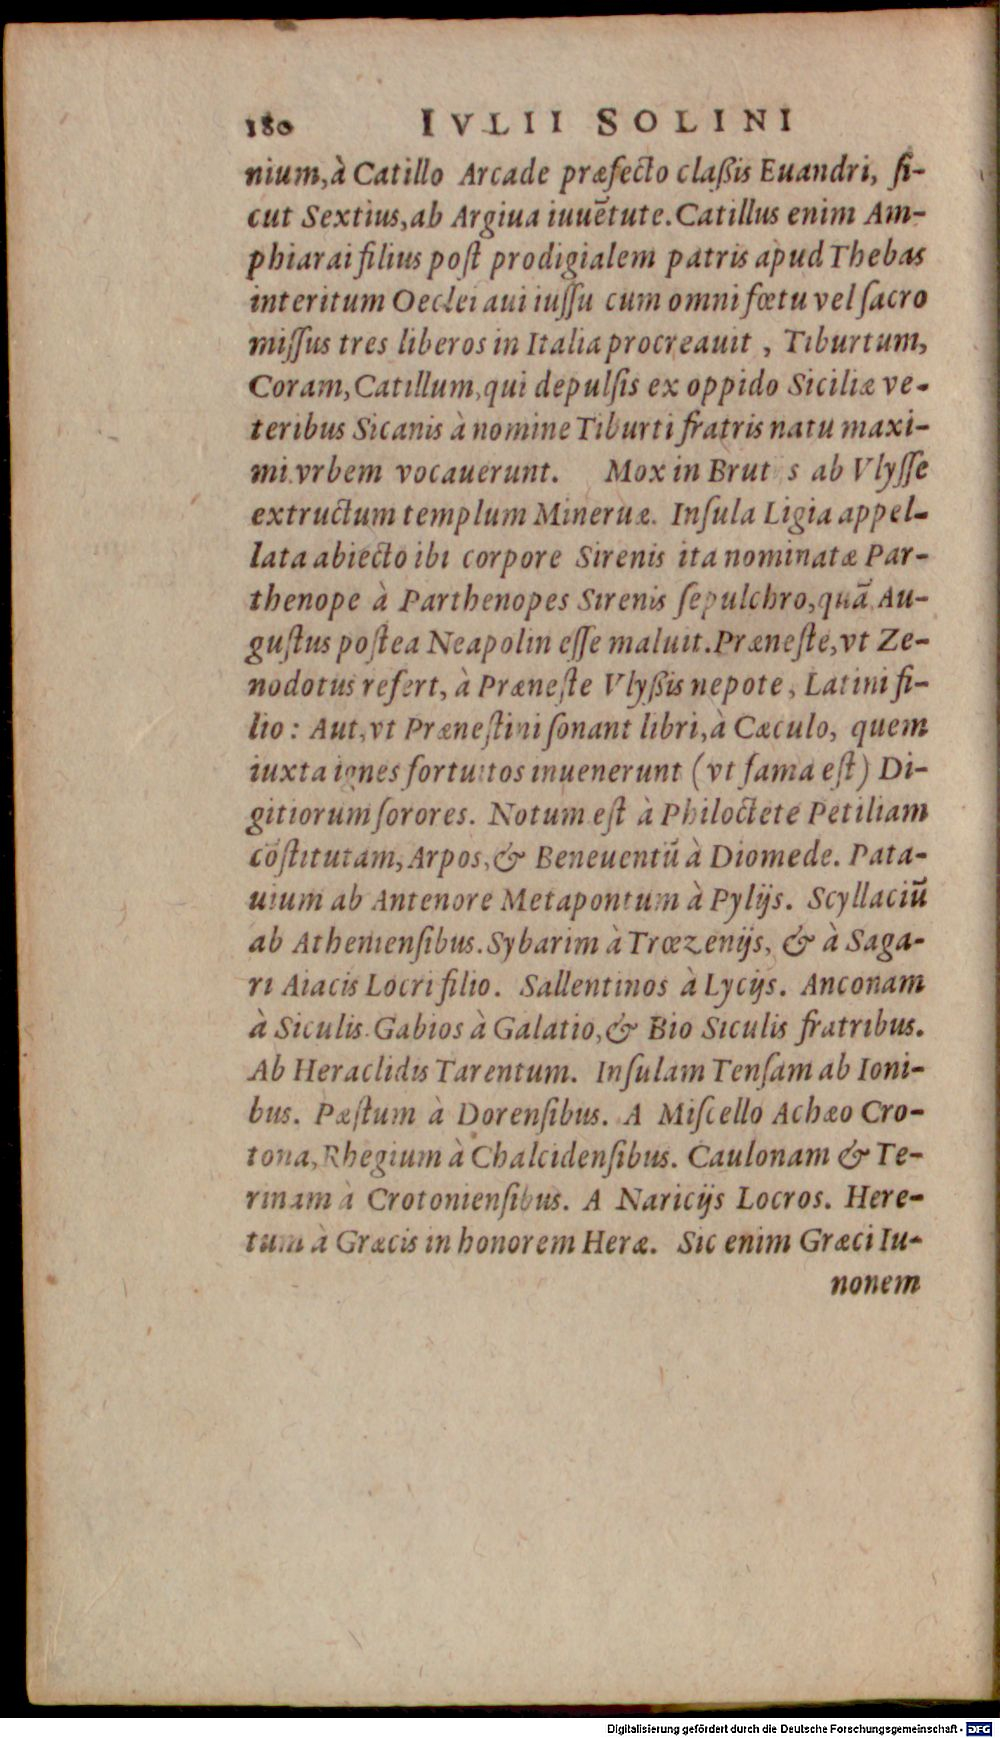 180 IVLII SOLINI
nium, à Catillo Arcade præfecto claßis Euandri, ſi-
cut Sextius, ab Argiua iuuētute. Catillus enim Am-
phiarai filius poſt prodigialem patris apud Thebas
interitum Oeclei aui iuſſu cum omni fœtu vel ſacro
miſſus tres liberos in Italia procreauit, Tiburtum,
Coram, Catillum, qui depulſis ex oppido Siciliæ ve-
teribus Sicanis à nomine Tiburti fratris natu maxi-
mi vrbem vocauerunt. Mox in Brut s ab Vlyſſe
extructum templum Mineruæ. Inſula Ligia appel-
lata abiecto ibi corpore Sirenis ita nominatæ Par-
thenope à Parthenopes Sirenis ſepulchro, quā Au-
guſtus poſtea Neapolin eſſe maluit. Præneſte, vt Ze-
nodotus refert, à Præneſte Vlyßis nepote, Latini fi-
lio: Aut, vt Præneſtini ſonant libri, à Cæculo, quem
iuxta ignes fortuitos inuenerunt (vt fama eſt) Di-
gitiorum ſorores. Notum eſt à Philoctete Petiliam
cōſtitutam, Arpos, & Beneuentū à Diomede. Pata-
uium ab Antenore Metapontum à Pylijs. Scyllaciū
ab Athenienſibus. Sybarim à Trœzenijs, & à Saga-
ri Aiacis Locri filio. Sallentinos à Lycijs. Anconam
à Siculis. Gabios à Galatio, & Bio Siculis fratribus.
Ab Heraclidis Tarentum. Inſulam Tenſam ab Ioni-
bus. Pæſtum à Dorenſibus. A Miſcello Achæo Cro-
tona, Rhegium à Chalcidenſibus. Caulonam & Te-
rinam à Crotonienſibus. A Naricijs Locros. Here-
tum à Græcis in honorem Heræ. Sic enim Græci Iu-
nonem
Digitalisierung gefördert durch die Deutsche Forschungsgemeinschaft - DFG